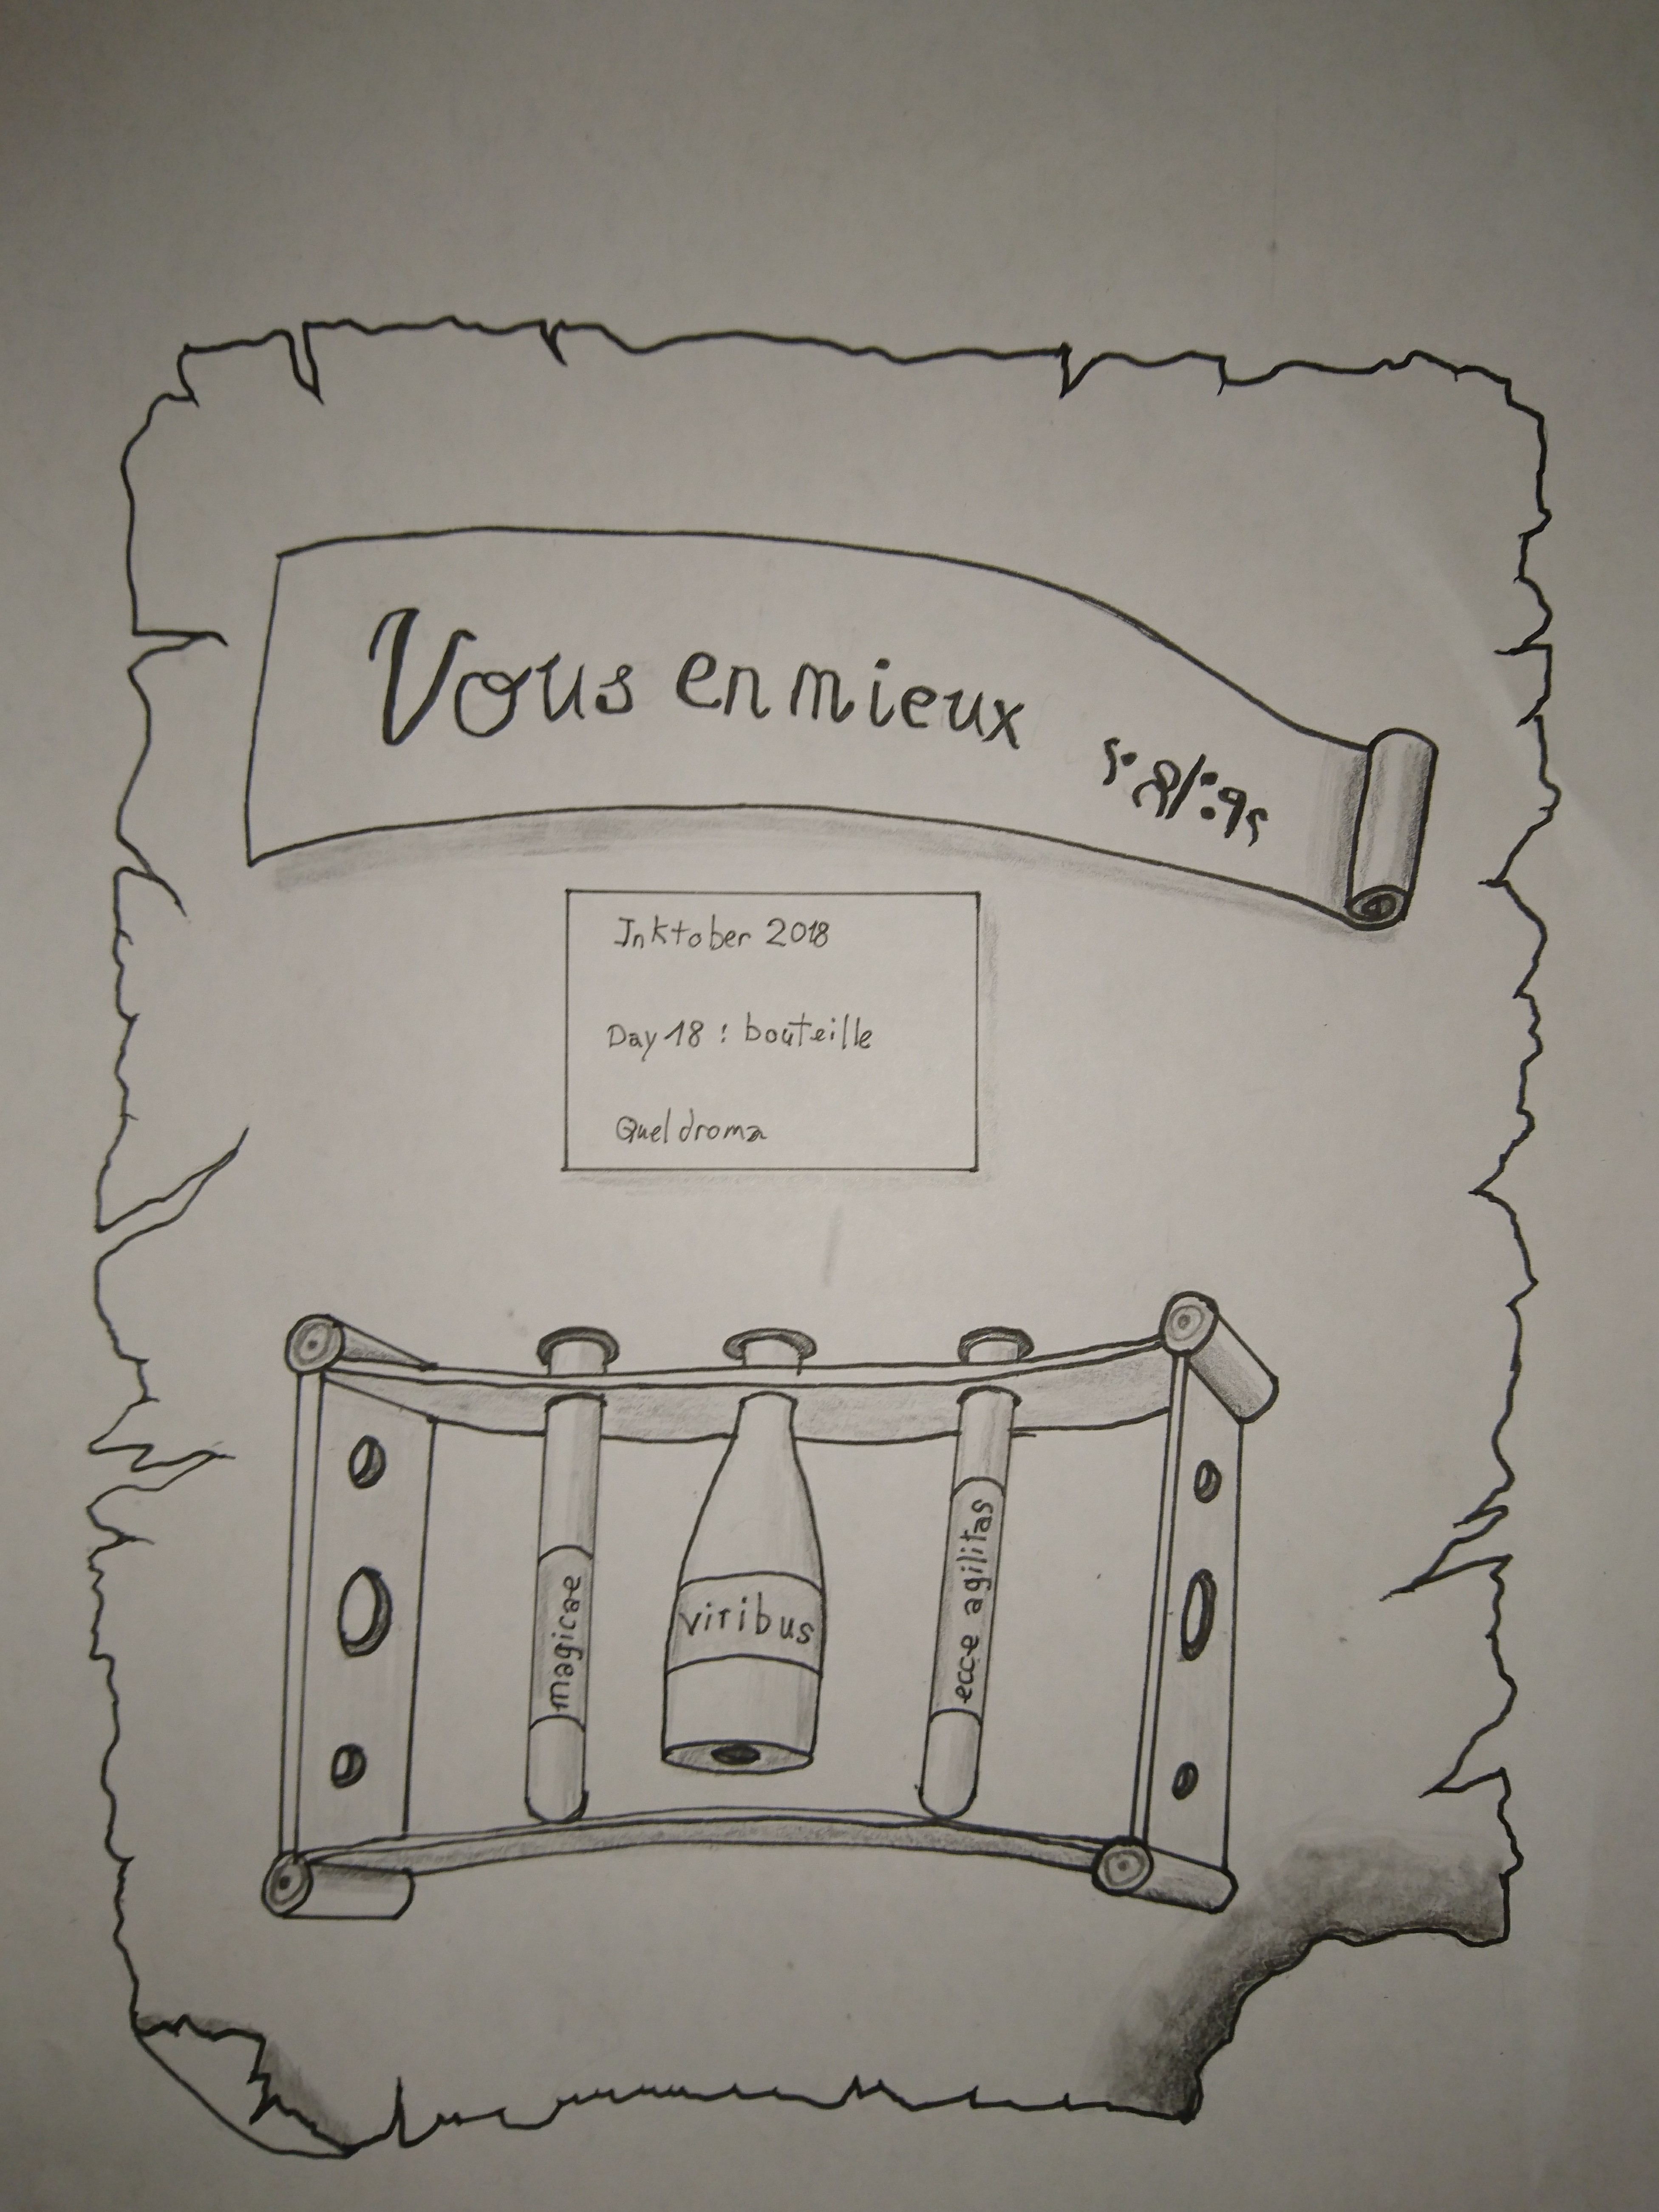 Vous en mieux
Inktober 2018
Day 18 : bouteille
Queldroma
magicae
viribus
ecce agilitas